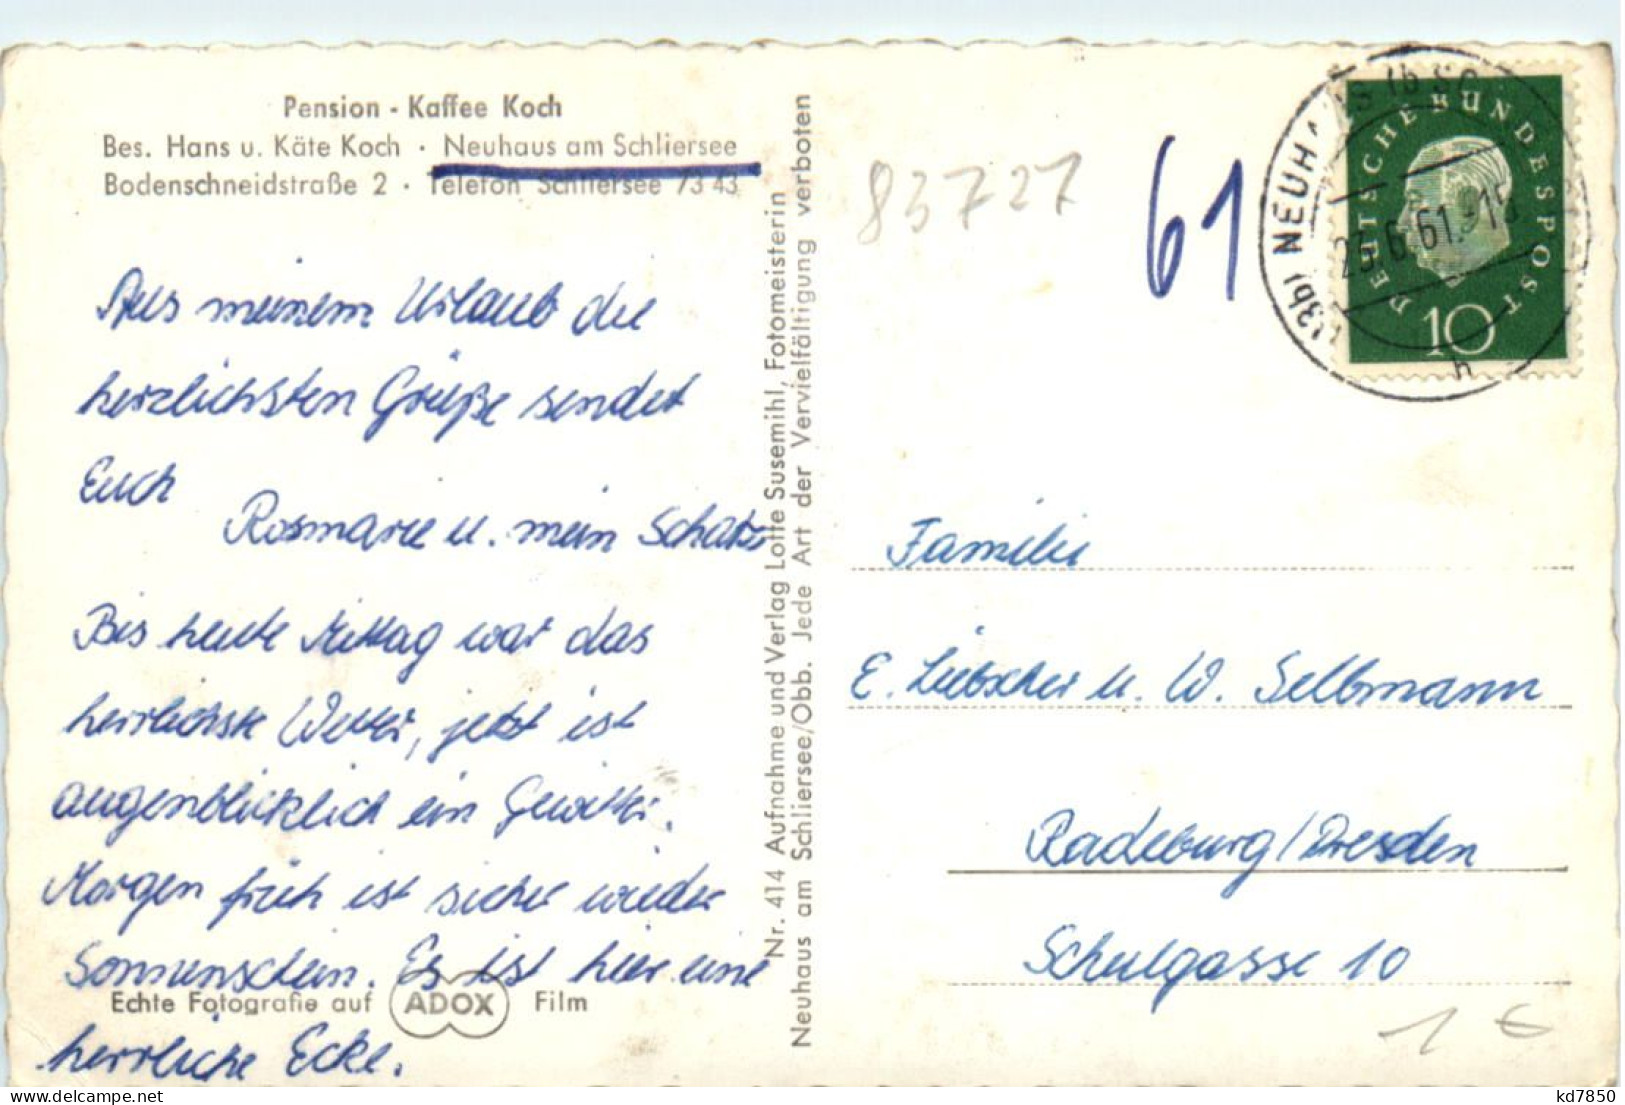 Pension - Kaffee Koch
Bes. Hans u. Käte Koch · Neuhaus am Schliersee
Bodenschneidstraße 2 · Telefon Schliersee 73 43
Aus meinem Urlaub die
herzlichsten Grüße sendet
Euch
Rosmarie u. mein Schatz
Bis heute Mittag war das
herrlichste Wetter, jetzt ist
augenblicklich ein Gewitter.
Morgen früh ist sicher wieder
Sonnenschein. Es ist hier eine
herrliche Ecke.
Echte Fotografie auf ADOX Film
Nr. 414 Aufnahme und Verlag Lotte Susemihl, Fotomeisterin
Neuhaus am Schliersee/Obb. Jede Art der Vervielfältigung verboten
83727
61
DEUTSCHE BUNDESPOST
10
(13b) NEUHAUS
23.6.61.-15
h
Familie
E. Liebscher u. W. Selbmann
Radeburg/Dresden
Schulgasse 10
1 €
kd7850